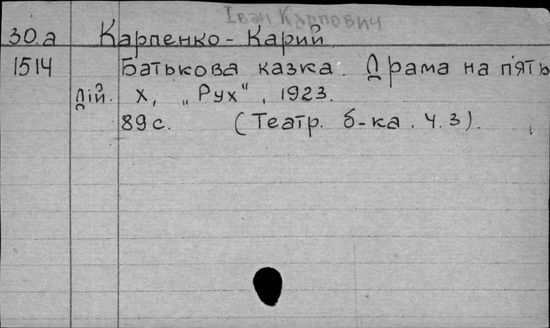 Іван Карпович
30.а Карпенко-Карий
1514 Батькова казка. Драма на пять
дій. Х., „Рух", 1923.
89с. (Театр. б-ка. Ч.3).